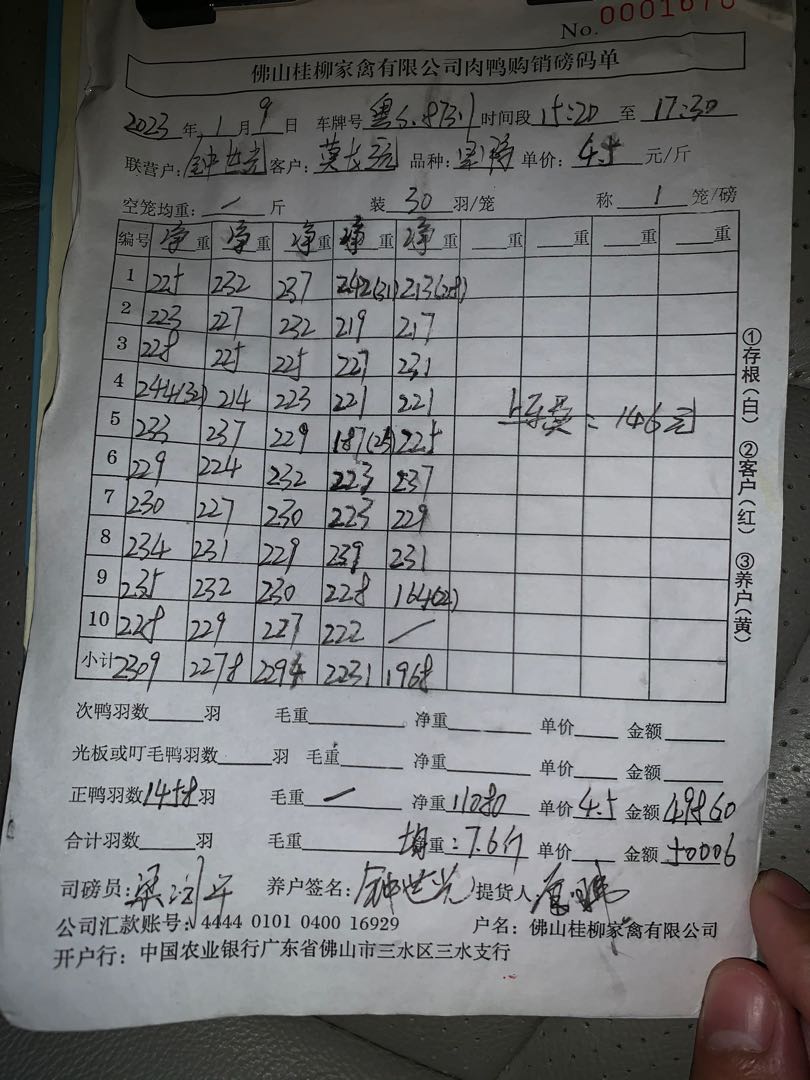 No. 0001670
佛山桂柳家禽有限公司肉鸭购销磅码单
2023年1月9日 车牌号 时间段15:20至17:30
联营户:钟世光 客户:莫长 品种: 单价:4.5元/斤
空笼均重:/斤 装30羽/笼 称1笼/磅
编号 净重 净重 净重 净重 净重 重 重 重 重
1 225 232 237 242(31) 213(28)
2 223 227 232 219 217
3 228 225 225 227 231
4 244(32) 214 223 221 221
上车费:146元
5 233 237 229 187(25) 225
6 229 224 232 223 237
7 230 227 230 223 229
8 234 231 229 239 231
9 235 232 230 228 164(22)
10 228 229 227 222 /
小计 2309 2278 2294 2231 1968
次鸭羽数 羽 毛重 净重 单价 金额
光板或叮毛鸭羽数 羽 毛重 净重 单价 金额
正鸭羽数1458羽 毛重/ 净重11080 单价4.5 金额49860
合计羽数 羽 毛重 均重:7.6斤 单价 金额50006
司磅员:梁 养户签名:钟世光 提货人
公司汇款账号:4444 0101 0400 16929 户名:佛山桂柳家禽有限公司
开户行:中国农业银行广东省佛山市三水区三水支行
①存根(白) ②客户(红) ③养户(黄)